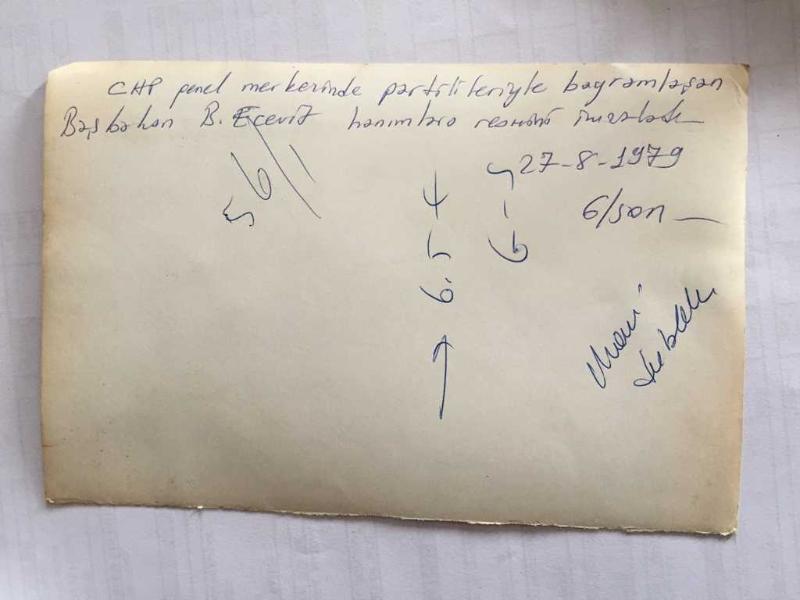 CHP genel merkezinde partilileriyle bayramlaşan
Başbakan B. Ecevit hanımlara resmini imzaladı
27-8-1979
6/son
5 6/1
6.5 4